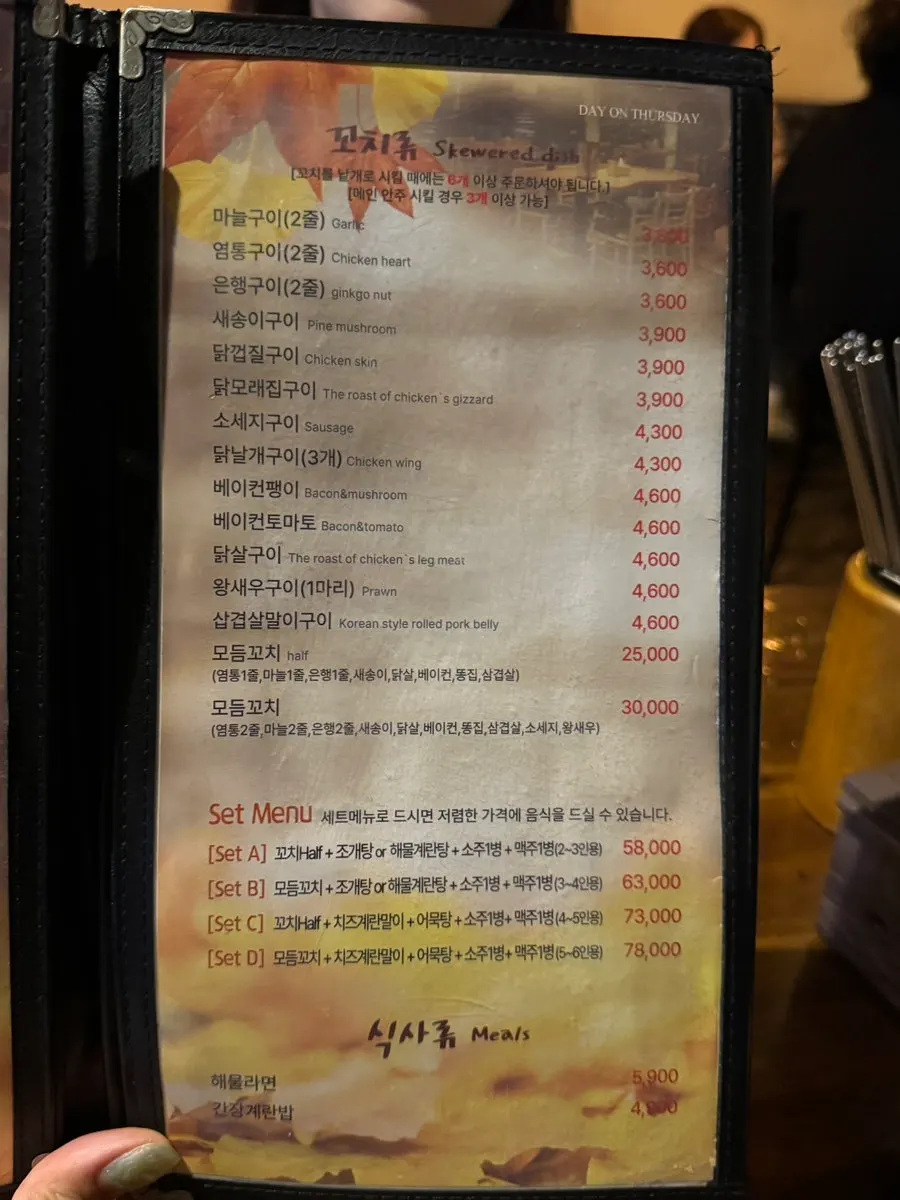 DAY ON THURSDAY
꼬치류 Skewered dish
[꼬치를 낱개로 시킬 때에는 6개 이상 주문하셔야 됩니다.]
[메인 안주 시킬 경우 3개 이상 가능]
마늘구이(2줄) Garlic 3,600
염통구이(2줄) Chicken heart 3,600
은행구이(2줄) ginkgo nut 3,600
새송이구이 Pine mushroom 3,900
닭껍질구이 Chicken skin 3,900
닭모래집구이 The roast of chicken`s gizzard 3,900
소세지구이 Sausage 4,300
닭날개구이(3개) Chicken wing 4,300
베이컨팽이 Bacon&mushroom 4,600
베이컨토마토 Bacon&tomato 4,600
닭살구이 The roast of chicken`s leg meat 4,600
왕새우구이(1마리) Prawn 4,600
삽겹살말이구이 Korean style rolled pork belly 4,600
모듬꼬치 half 25,000
(염통1줄,마늘1줄,은행1줄,새송이,닭살,베이컨,똥집,삼겹살)
모듬꼬치 30,000
(염통2줄,마늘2줄,은행2줄,새송이,닭살,베이컨,똥집,삼겹살,소세지,왕새우)
Set Menu 세트메뉴로 드시면 저렴한 가격에 음식을 드실 수 있습니다.
[Set A] 꼬치Half + 조개탕 or 해물계란탕 + 소주1병 + 맥주1병(2~3인용) 58,000
[Set B] 모듬꼬치 + 조개탕 or 해물계란탕 + 소주1병 + 맥주1병(3~4인용) 63,000
[Set C] 꼬치Half + 치즈계란말이 + 어묵탕 + 소주1병+ 맥주1병(4~5인용) 73,000
[Set D] 모듬꼬치 + 치즈계란말이 + 어묵탕 + 소주1병+ 맥주1병(5~6인용) 78,000
식사류 Meals
해물라면 5,900
간장계란밥